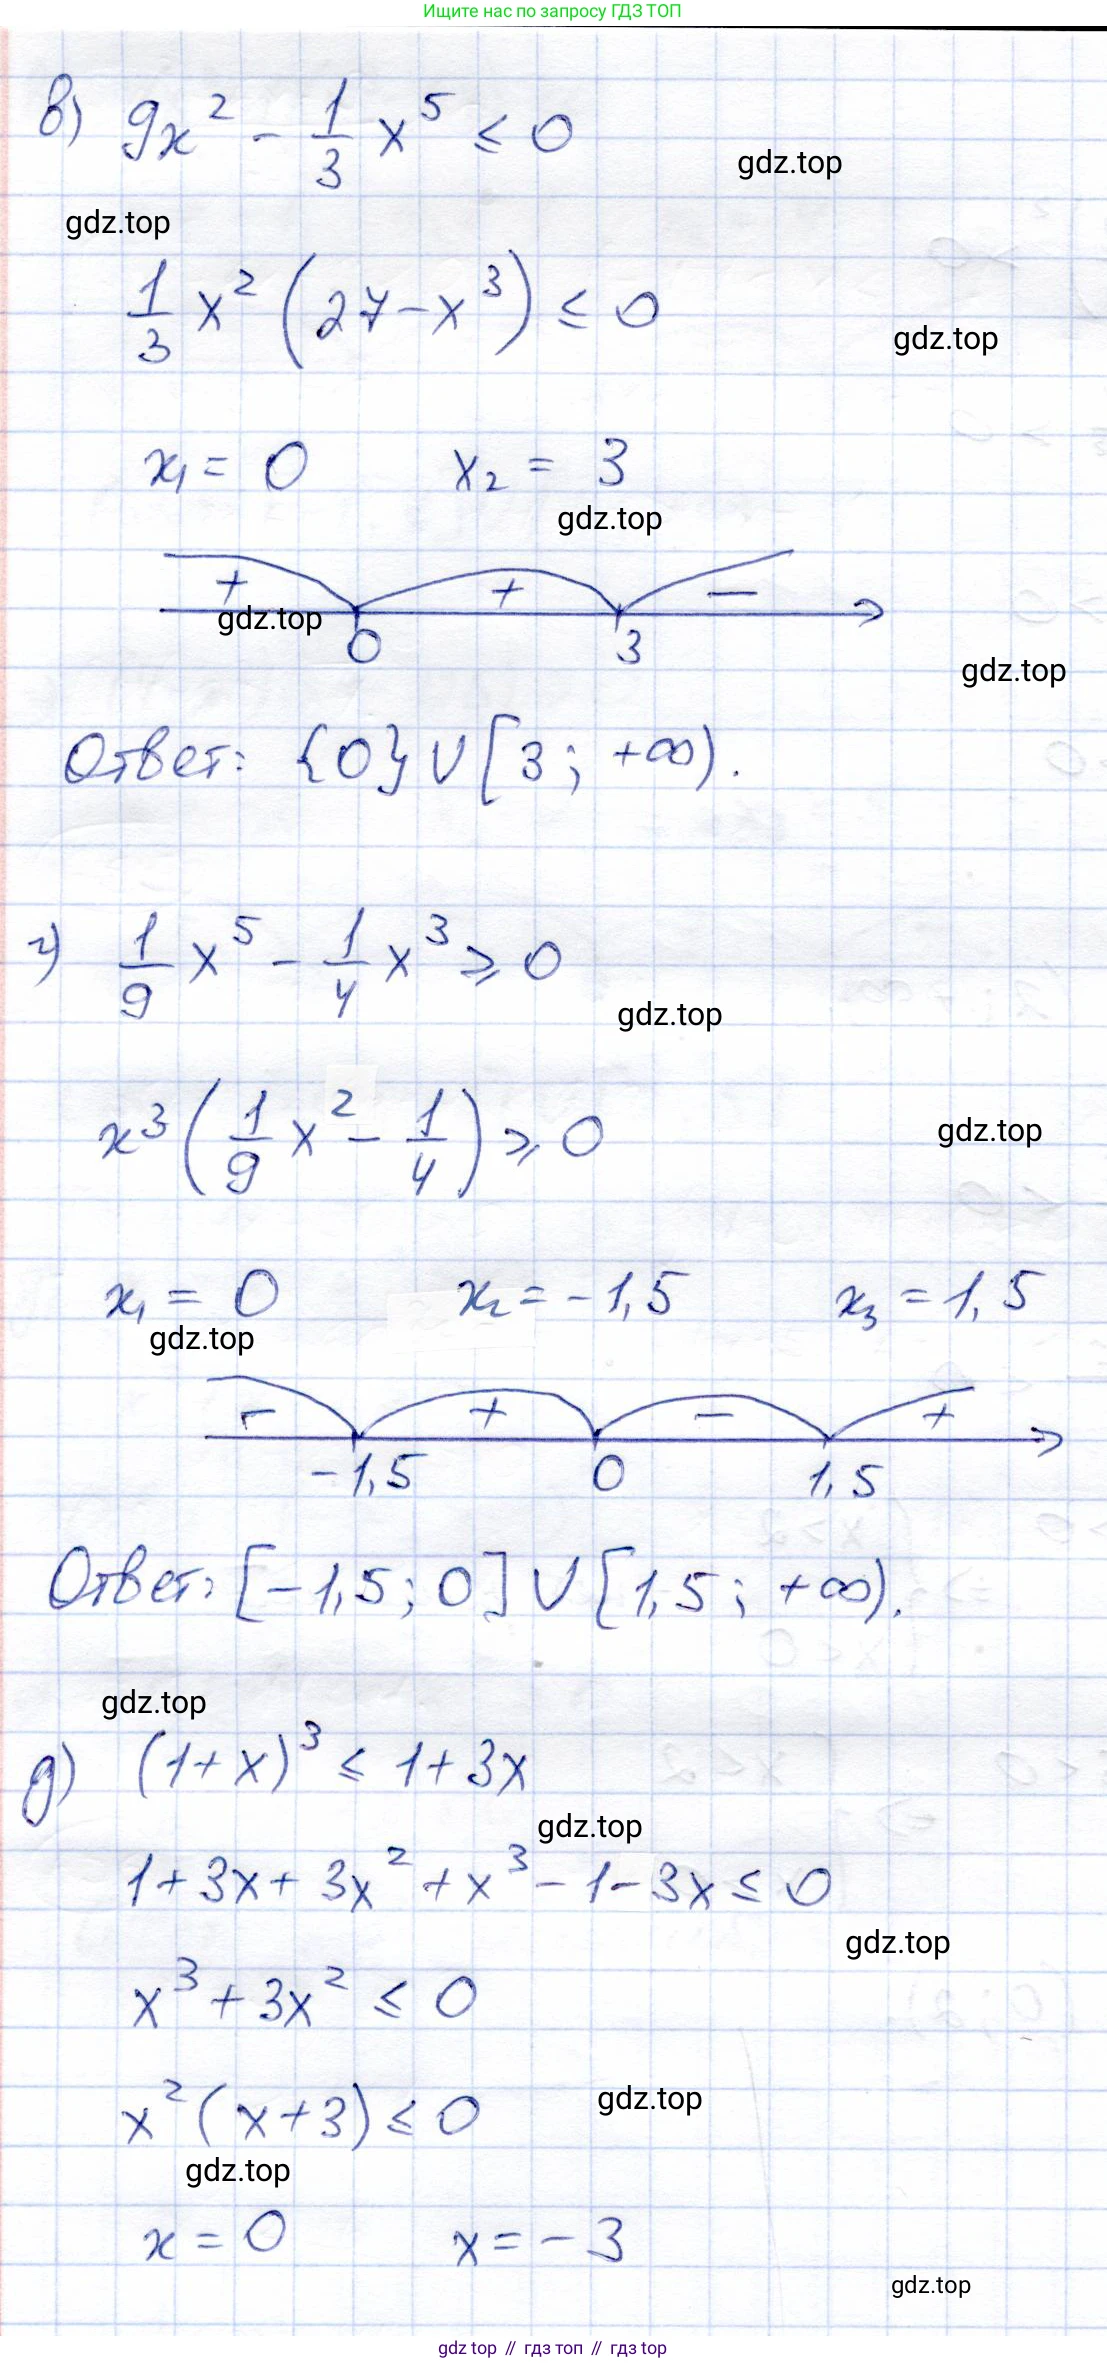 Ищите нас по запросу ГДЗ ТОП
в) 9x² - 1/3 x⁵ ≤ 0
gdz.top
gdz.top
1/3 x² (27 - x³) ≤ 0
gdz.top
x₁ = 0 x₂ = 3
gdz.top
+ + -
gdz.top
0 3
gdz.top
Ответ: {0} ∪ [3; +∞).
г) 1/9 x⁵ - 1/4 x³ ≥ 0
gdz.top
x³ (1/9 x² - 1/4) ≥ 0
gdz.top
x₁ = 0 x₂ = -1,5 x₃ = 1,5
gdz.top
- + - +
-1,5 0 1,5
Ответ: [-1,5; 0] ∪ [1,5; +∞).
gdz.top
д) (1+x)³ ≤ 1+3x
gdz.top
1+3x+3x²+x³-1-3x ≤ 0
gdz.top
x³+3x² ≤ 0
x²(x+3) ≤ 0
gdz.top
gdz.top
x = 0 x = -3
gdz.top
gdz top // гдз топ // гдз top